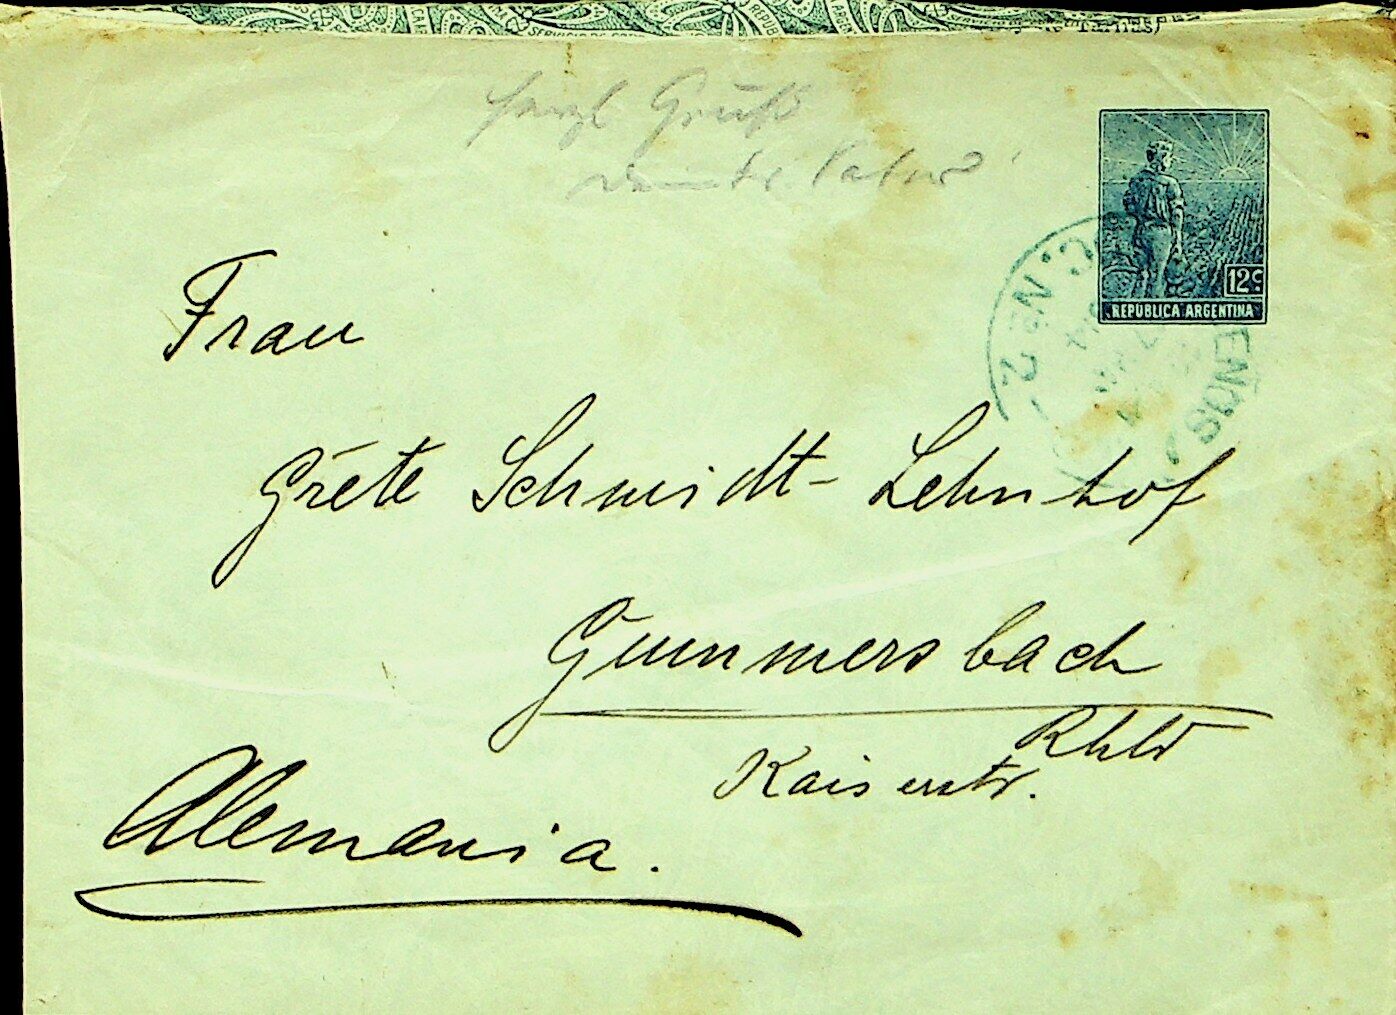 herzl Gruß
Vater
12c
REPÚBLICA ARGENTINA
Nº 2
Frau
Grete Schmidt-Lehnhof
Gummersbach
Rhld
Kaiserstr.
Alemania.